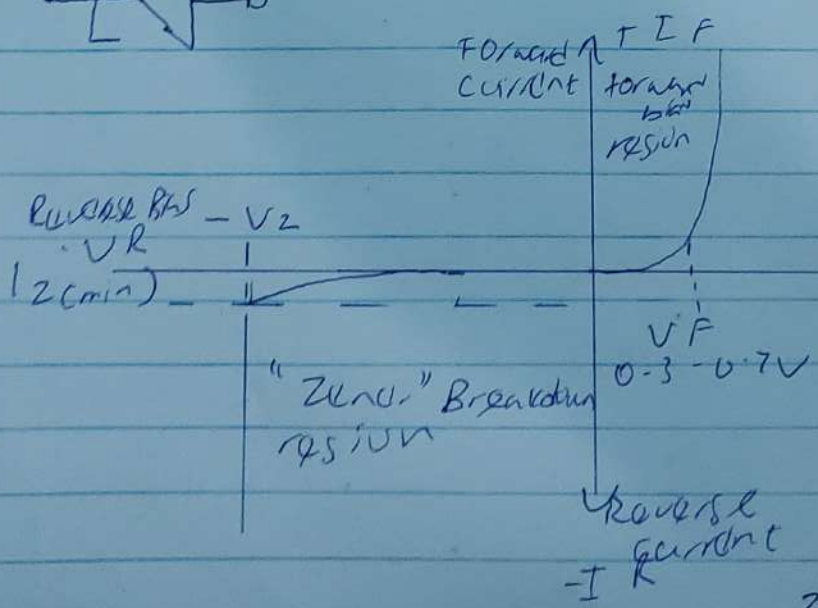 Forward
current
+ I F
forward
bias
region
Reverse Bias
- VZ
VR
IZ(min)
VF
0.3-0.7V
"Zener" Breakdown
region
Reverse
current
-I R